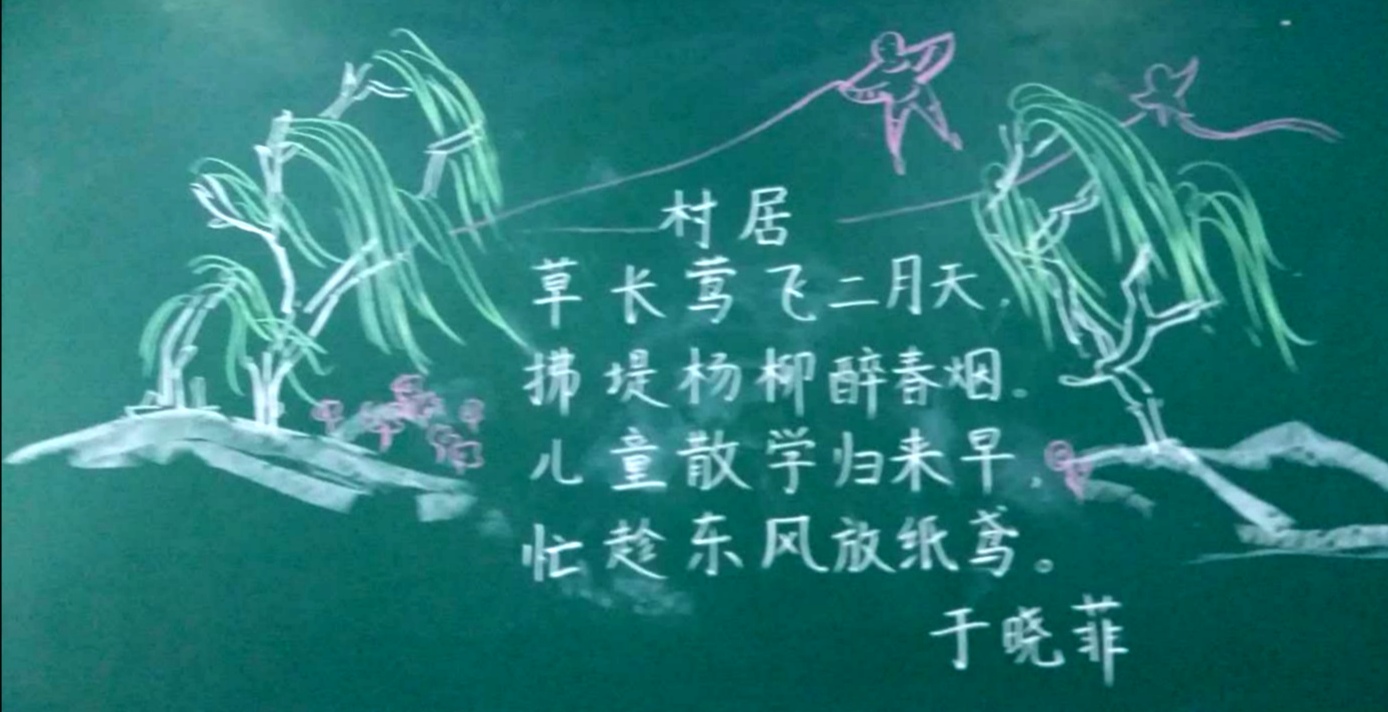 村居
草长莺飞二月天，
拂堤杨柳醉春烟。
儿童散学归来早，
忙趁东风放纸鸢。
于晓菲